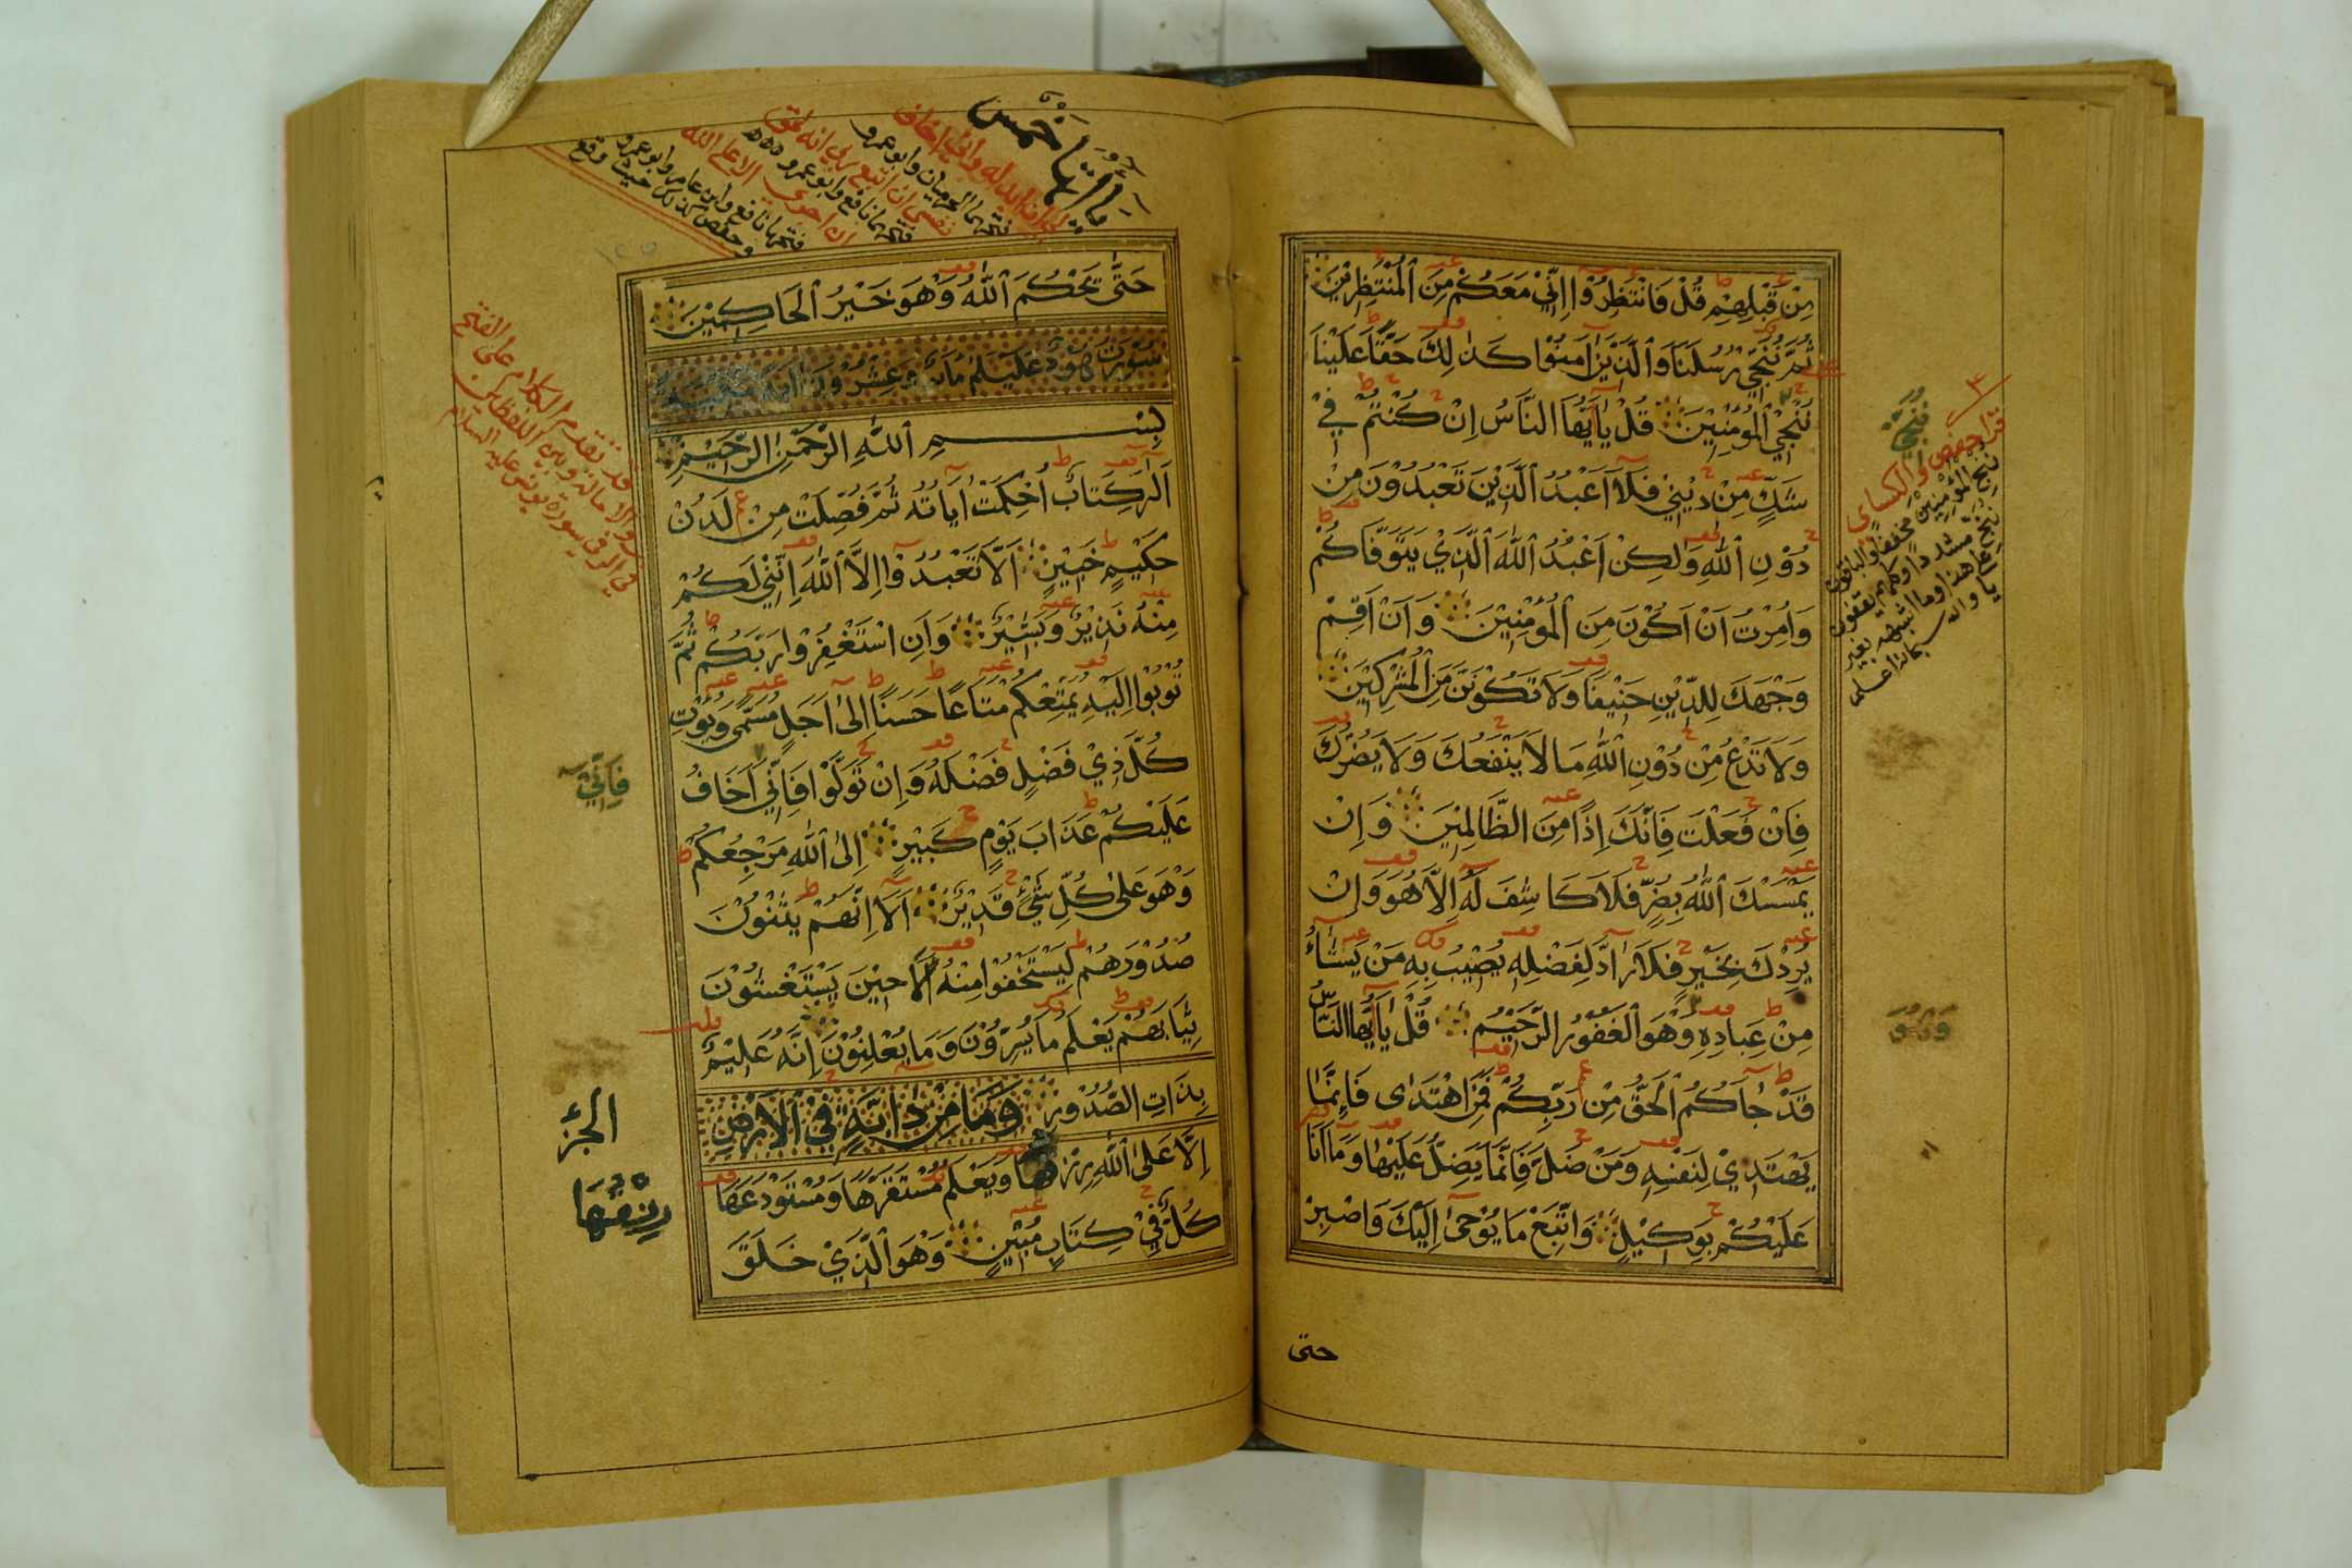 مِنْ قَبْلِهِمْ قُلْ فَانْتَظِرُوْا اِنِّيْ مَعَكُمْ مِنَ الْمُنْتَظِرِيْنَ
ثُمَّ نُنَجِّيْ رُسُلَنَا وَالَّذِيْنَ اٰمَنُوْا كَذٰلِكَ حَقًّا عَلَيْنَا
نُنْجِي الْمُؤْمِنِيْنَ قُلْ يَا اَيُّهَا النَّاسُ اِنْ كُنْتُمْ فِيْ
شَكٍّ مِنْ دِيْنِيْ فَلَا اَعْبُدُ الَّذِيْنَ تَعْبُدُوْنَ مِنْ
دُوْنِ اللّٰهِ وَلٰكِنْ اَعْبُدُ اللّٰهَ الَّذِيْ يَتَوَفَّاكُمْ
وَاُمِرْتُ اَنْ اَكُوْنَ مِنَ الْمُؤْمِنِيْنَ وَاَنْ اَقِمْ
وَجْهَكَ لِلدِّيْنِ حَنِيْفًا وَلَا تَكُوْنَنَّ مِنَ الْمُشْرِكِيْنَ
وَلَا تَدْعُ مِنْ دُوْنِ اللّٰهِ مَا لَا يَنْفَعُكَ وَلَا يَضُرُّكَ
فَاِنْ فَعَلْتَ فَاِنَّكَ اِذًا مِنَ الظَّالِمِيْنَ وَاِنْ
يَمْسَسْكَ اللّٰهُ بِضُرٍّ فَلَا كَاشِفَ لَهُ اِلَّا هُوَ وَاِنْ
يُرِدْكَ بِخَيْرٍ فَلَا رَادَّ لِفَضْلِهِ يُصِيْبُ بِهِ مَنْ يَشَاءُ
مِنْ عِبَادِهِ وَهُوَ الْغَفُوْرُ الرَّحِيْمُ قُلْ يَا اَيُّهَا النَّاسُ
قَدْ جَاءَكُمُ الْحَقُّ مِنْ رَبِّكُمْ فَمَنِ اهْتَدٰى فَاِنَّمَا
يَهْتَدِيْ لِنَفْسِهِ وَمَنْ ضَلَّ فَاِنَّمَا يَضِلُّ عَلَيْهَا وَمَا اَنَا
عَلَيْكُمْ بِوَكِيْلٍ وَاتَّبِعْ مَا يُوْحٰى اِلَيْكَ وَاصْبِرْ
حتى
قرا حفص والكسائي
ننج المؤمنين مخففا والباقون
حَتّٰى يَحْكُمَ اللّٰهُ وَهُوَ خَيْرُ الْحَاكِمِيْنَ
بِسْمِ اللّٰهِ الرَّحْمٰنِ الرَّحِيْمِ
اَلٰرٰ كِتَابٌ اُحْكِمَتْ اٰيَاتُهُ ثُمَّ فُصِّلَتْ مِنْ لَدُنْ
حَكِيْمٍ خَبِيْرٍ اَلَّا تَعْبُدُوْا اِلَّا اللّٰهَ اِنَّنِيْ لَكُمْ
مِنْهُ نَذِيْرٌ وَبَشِيْرٌ وَاَنِ اسْتَغْفِرُوْا رَبَّكُمْ ثُمَّ
تُوْبُوْا اِلَيْهِ يُمَتِّعْكُمْ مَتَاعًا حَسَنًا اِلٰى اَجَلٍ مُسَمًّى وَيُؤْتِ
كُلَّ ذِيْ فَضْلٍ فَضْلَهُ وَاِنْ تَوَلَّوْا فَاِنِّيْ اَخَافُ
عَلَيْكُمْ عَذَابَ يَوْمٍ كَبِيْرٍ اِلَى اللّٰهِ مَرْجِعُكُمْ
وَهُوَ عَلٰى كُلِّ شَيْءٍ قَدِيْرٌ اَلَا اِنَّهُمْ يَثْنُوْنَ
صُدُوْرَهُمْ لِيَسْتَخْفُوْا مِنْهُ اَلَا حِيْنَ يَسْتَغْشُوْنَ
ثِيَابَهُمْ يَعْلَمُ مَا يُسِرُّوْنَ وَمَا يُعْلِنُوْنَ اِنَّهُ عَلِيْمٌ
بِذَاتِ الصُّدُوْرِ وَمَا مِنْ دَابَّةٍ فِي الْاَرْضِ
اِلَّا عَلَى اللّٰهِ رِزْقُهَا وَيَعْلَمُ مُسْتَقَرَّهَا وَمُسْتَوْدَعَهَا
كُلٌّ فِيْ كِتَابٍ مُبِيْنٍ وَهُوَ الَّذِيْ خَلَقَ
فَاِنِّيْ
الجزء
رزقها